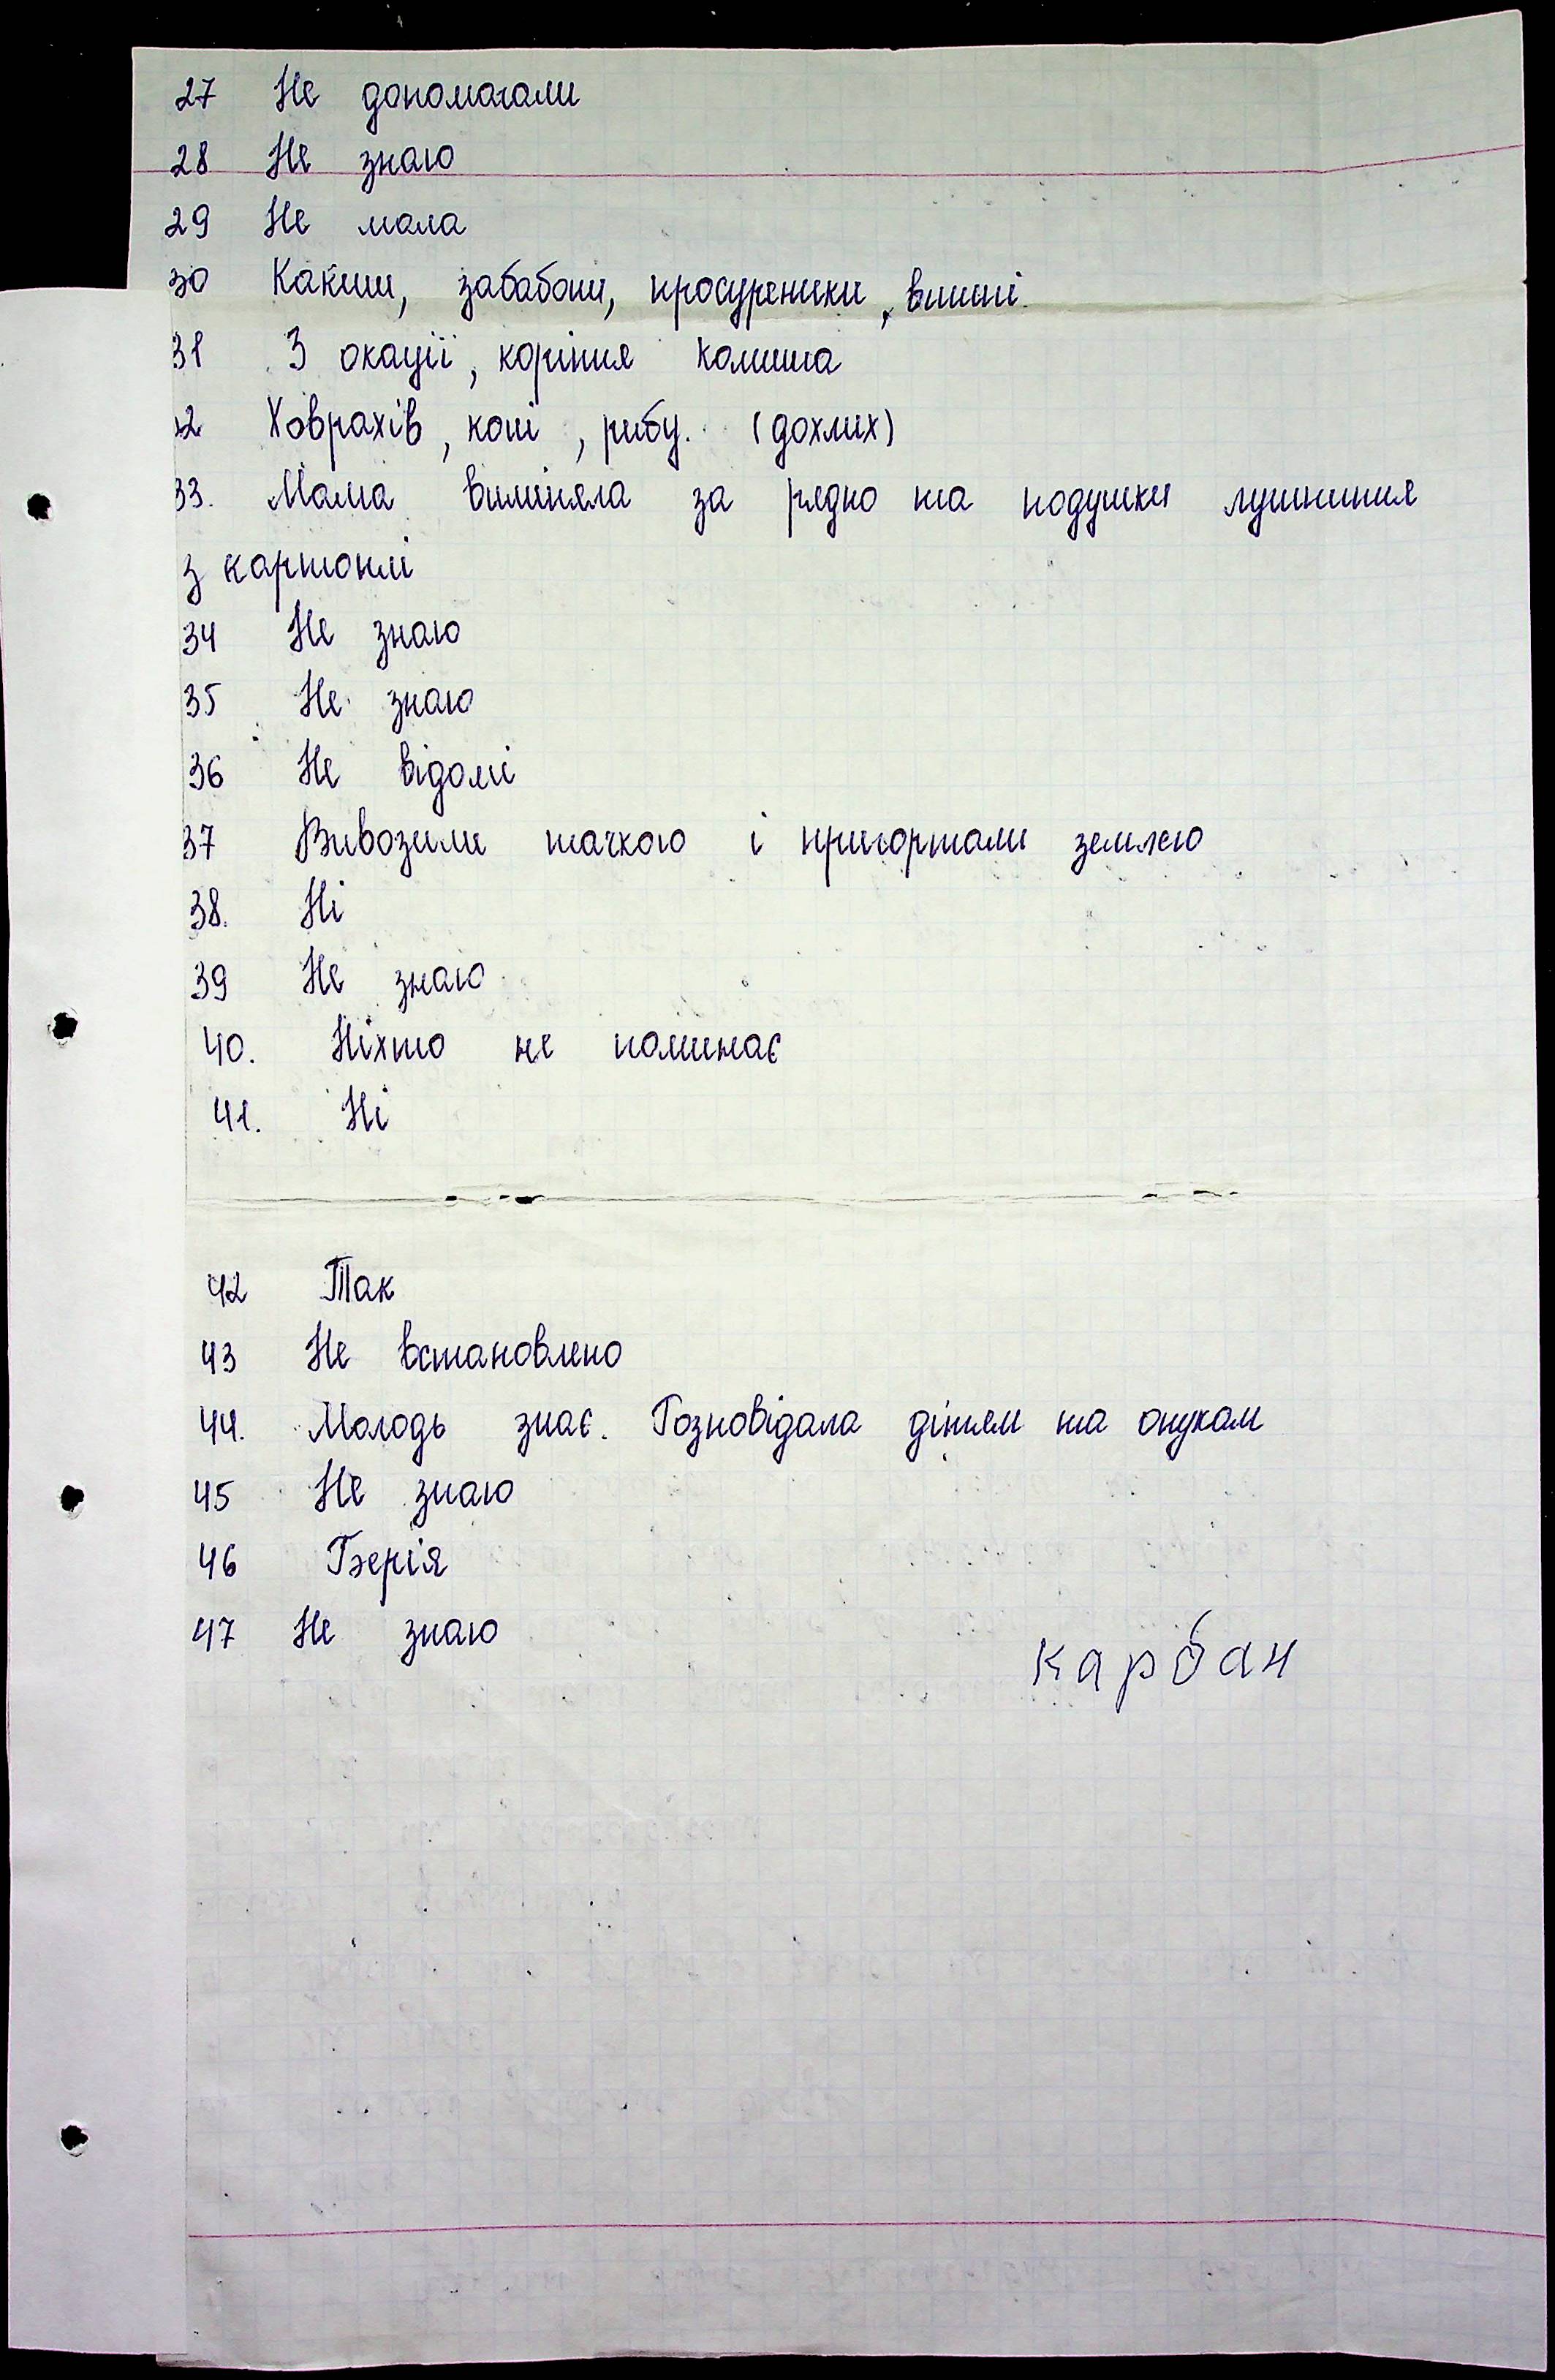 27 Не допомагали
28 Не знаю
29 Не мала
30 Какиш, забабони, просуреники, вишні.
31 З окації, коріння комиша
32 Ховрахів, коні, рибу. (дохлих)
33. Мама виміняла за рядно та подушки лушпиння
з картоплі
34 Не знаю
35 Не знаю
36 Не відомі
37 Вивозили тачкою і пригортали землею
38. Ні
39 Не знаю
40. Ніхто не поминає
41. Ні
42 Так
43 Не встановлено
44. Молодь знає. Розповідала дітям та онукам
45 Не знаю
46 Берія
47 Не знаю
карбан